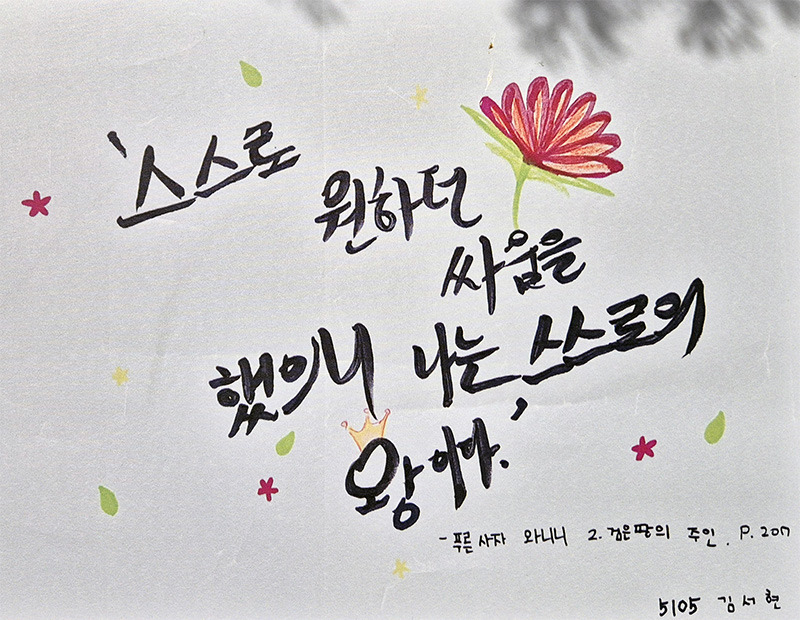 '스스로
원하던
싸움을
했으니 나는 스스로의
왕이다.'
- 푸른 사자 와니니 2. 검은 땅의 주인. P. 207
5105 김서현